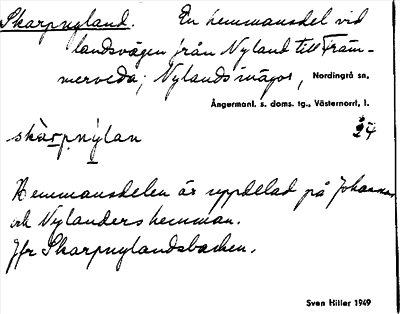 Skarpnyland. En hemmansdel vid
landsvägen från Nyland till Främ-
merveda; Nylands mågor, Nordingrå sn,
Ångermanl. s. doms. tg., Västernorrl. l.
skàrpnýlan 24
Hemmansdelen är uppdelad på Johannes
och Nylanders hemman.
Jfr Skarpnylandsbacken.
Sven Hiller 1949